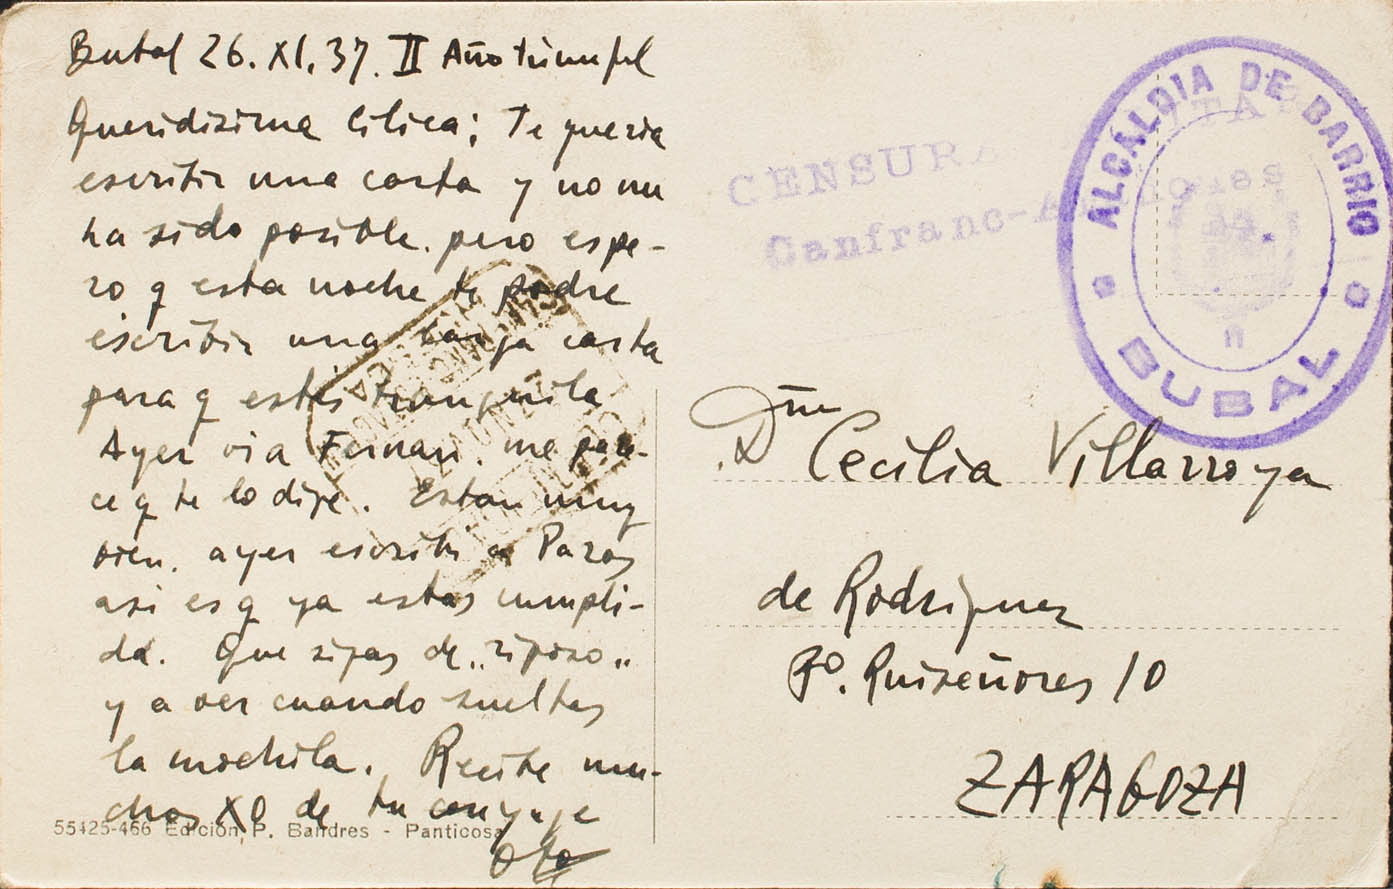 Bubal 26. XI. 37. II Año triunfal
Queridisima Cilica; Te queria
escribir una carta y no me
ha sido posible. pero espe-
ro q esta noche te podre
escribir una larga carta
para q estés tranquila
Ayer via Fernan. me pare-
ce q te lo dije. Estan muy
bien. ayer escribi a Paros
asi es q ya estas cumpli-
da. Que sigas de „riposo„
y a ver cuando sueltas
la mochila. Recibe mu-
chos XO de tu conyuje
Oto
55425-466 Edición P. Bandres - Panticosa
CENSURA
Canfranc-
ALCALDIA DE BARRIO
BUBAL
Dña Cecilia Villarroya
de Rodriguez
Pº. Ruiseñores 10
ZARAGOZA